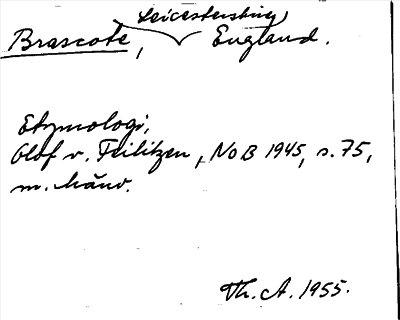 Leicestershire,
Brascote, England.
Etymologi,
Olof v. Feilitzen, NoB 1945, s. 75,
m. hänv.
Th. A. 1955.